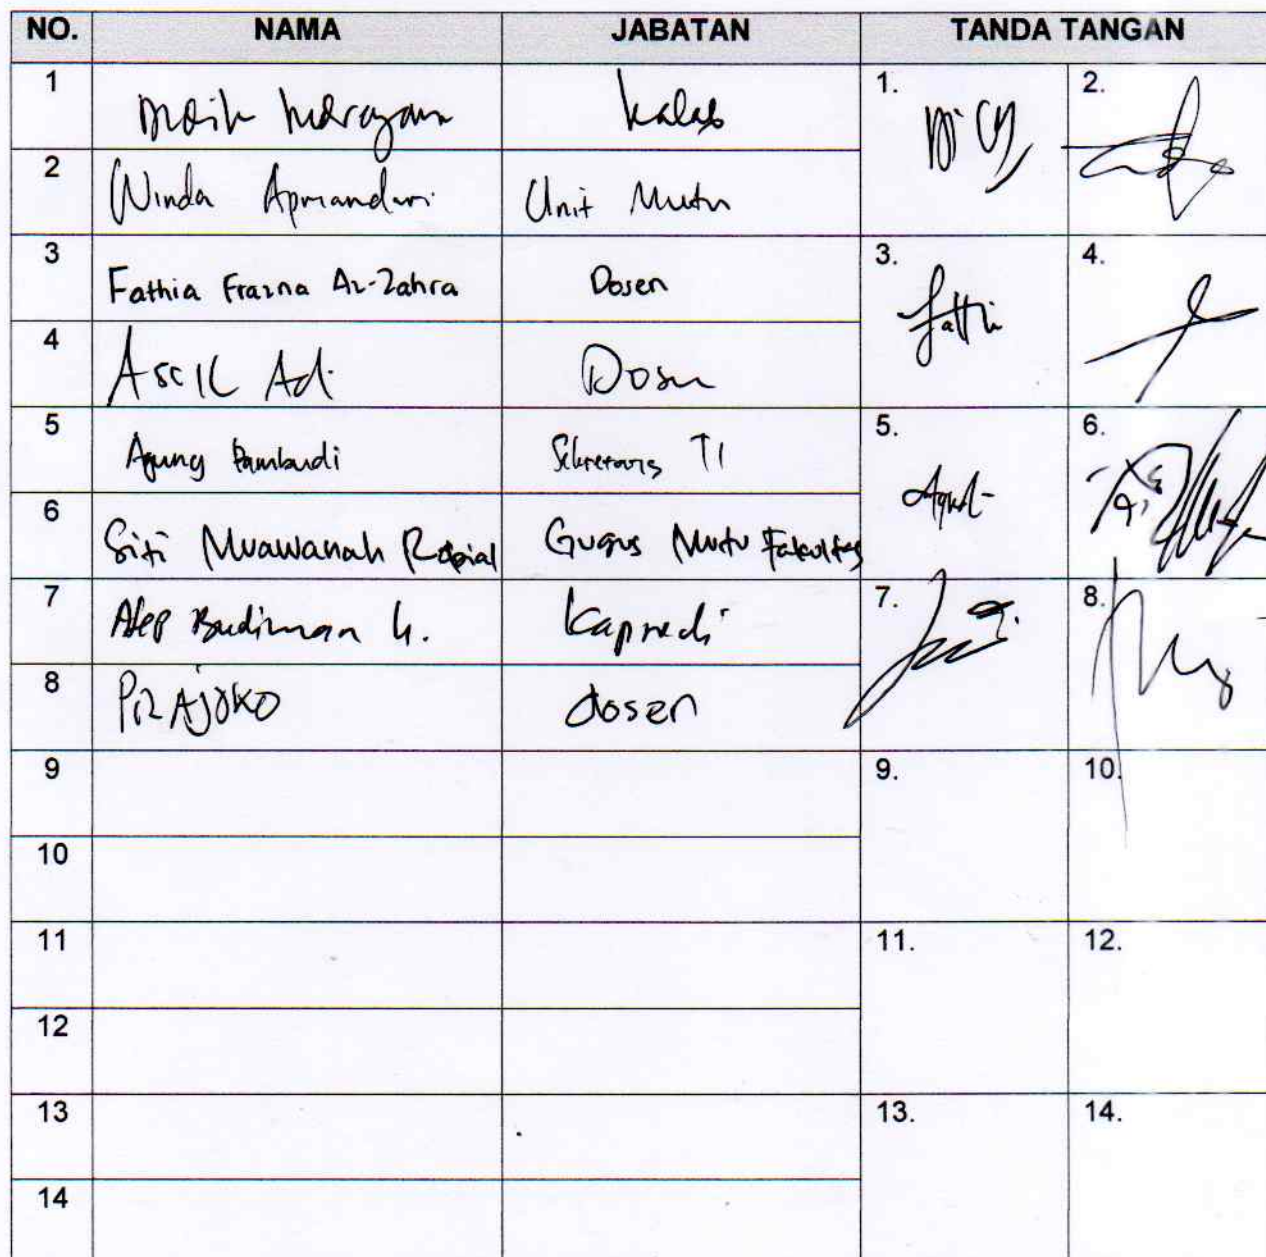 NO. NAMA JABATAN TANDA TANGAN
1 Didik Indrayana Kalab 1. 2.
2 Winda Apriandari Unit Mutu
3 Fathia Frazna Az-Zahra Dosen 3. 4.
4 Asril Ad. Dosen
5 Agung Pambudi Sekretaris TI 5. 6.
6 Siti Muawanah Gugus Mutu Fakultas
7 Budiman Kaprodi 7. 8.
8 PRAJOKO dosen
9 9. 10.
10
11 11. 12.
12
13 13. 14.
14